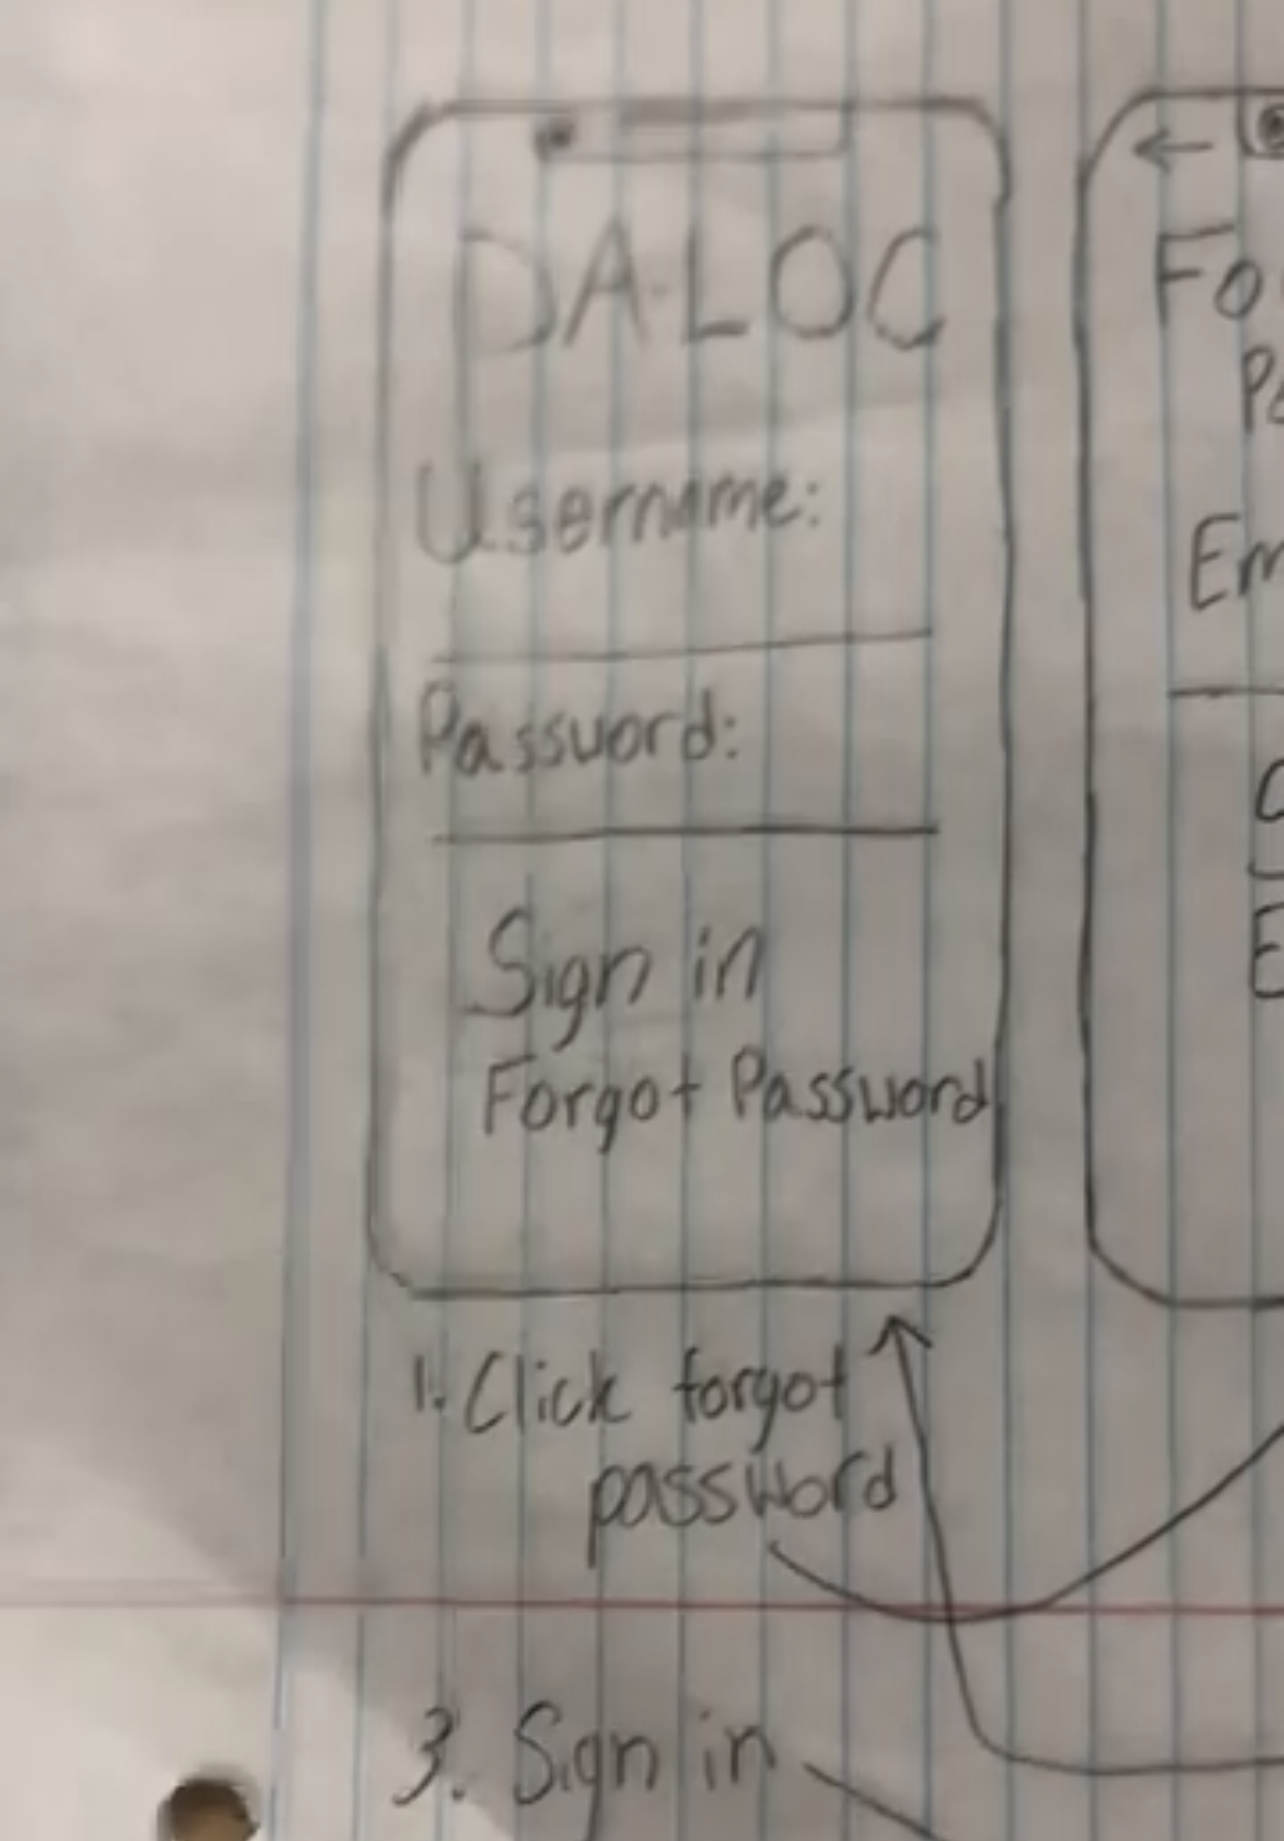 DA-LOC
Username:
Password:
Sign in
Forgot Password
1. Click forgot
password
3. Sign in
Fo
Em